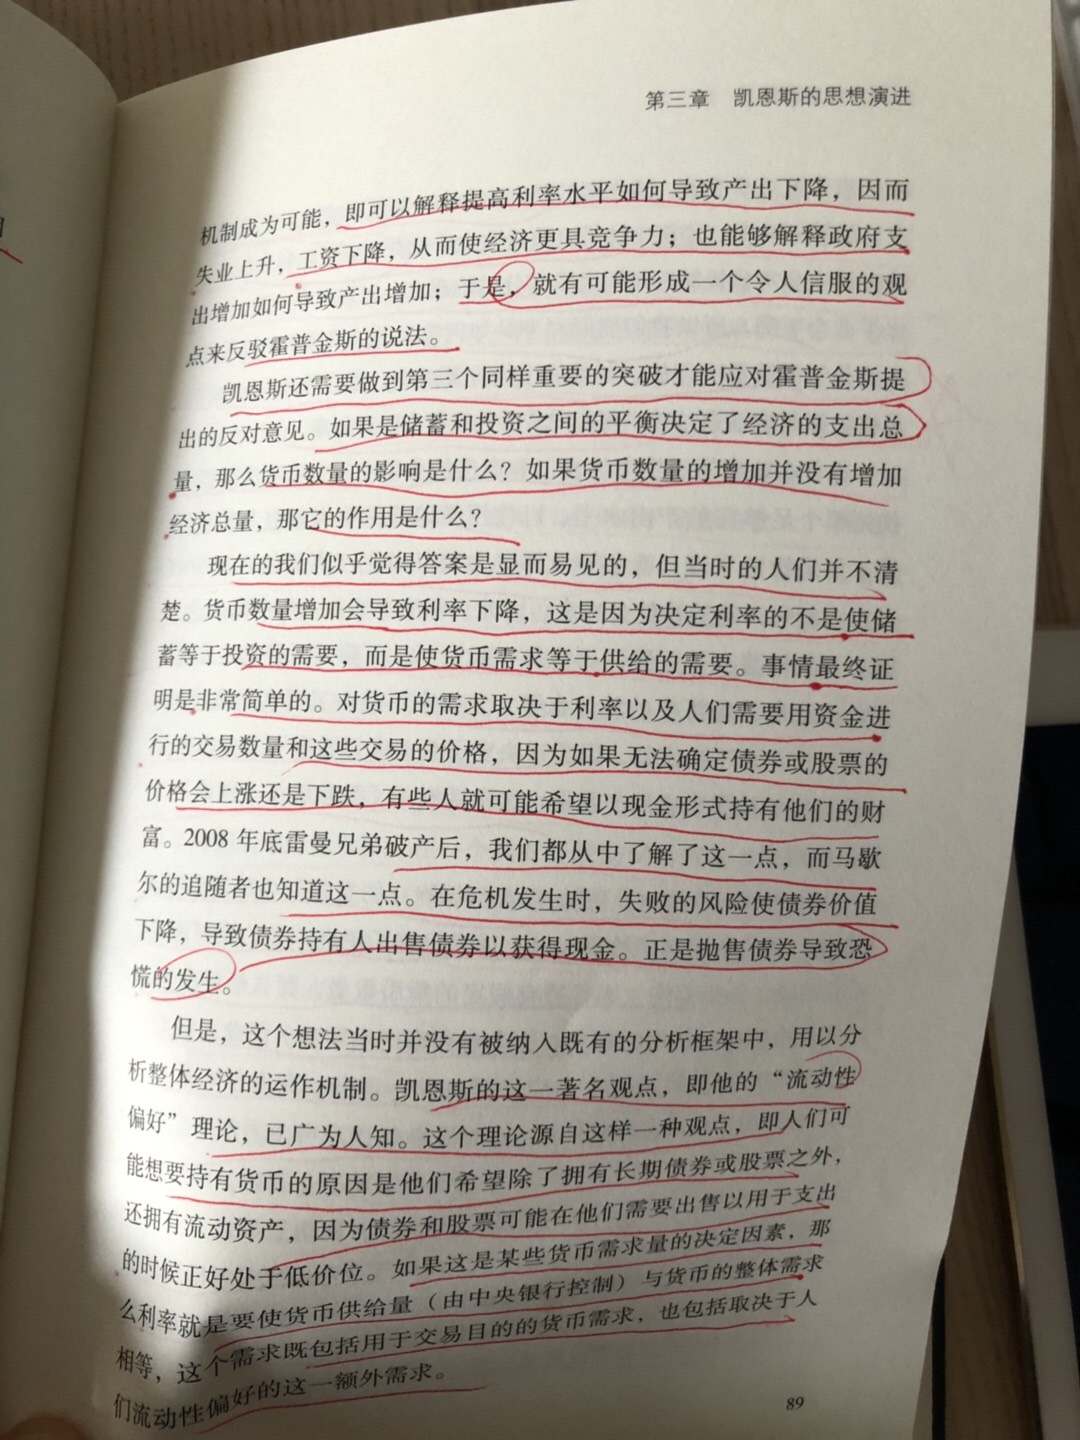 第三章 凯恩斯的思想演进
机制成为可能，即可以解释提高利率水平如何导致产出下降，因而
失业上升，工资下降，从而使经济更具竞争力；也能够解释政府支
出增加如何导致产出增加；于是，就有可能形成一个令人信服的观
点来反驳霍普金斯的说法。
凯恩斯还需要做到第三个同样重要的突破才能应对霍普金斯提
出的反对意见。如果是储蓄和投资之间的平衡决定了经济的支出总
量，那么货币数量的影响是什么？如果货币数量的增加并没有增加
经济总量，那它的作用是什么？
现在的我们似乎觉得答案是显而易见的，但当时的人们并不清
楚。货币数量增加会导致利率下降，这是因为决定利率的不是使储
蓄等于投资的需要，而是使货币需求等于供给的需要。事情最终证
明是非常简单的。对货币的需求取决于利率以及人们需要用资金进
行的交易数量和这些交易的价格，因为如果无法确定债券或股票的
价格会上涨还是下跌，有些人就可能希望以现金形式持有他们的财
富。2008 年底雷曼兄弟破产后，我们都从中了解了这一点，而马歇
尔的追随者也知道这一点。在危机发生时，失败的风险使债券价值
下降，导致债券持有人出售债券以获得现金。正是抛售债券导致恐
慌的发生。
但是，这个想法当时并没有被纳入既有的分析框架中，用以分
析整体经济的运作机制。凯恩斯的这一著名观点，即他的“流动性
偏好”理论，已广为人知。这个理论源自这样一种观点，即人们可
能想要持有货币的原因是他们希望除了拥有长期债券或股票之外，
还拥有流动资产，因为债券和股票可能在他们需要出售以用于支出
的时候正好处于低价位。如果这是某些货币需求量的决定因素，那
么利率就是要使货币供给量（由中央银行控制）与货币的整体需求
相等，这个需求既包括用于交易目的的货币需求，也包括取决于人
们流动性偏好的这一额外需求。
89